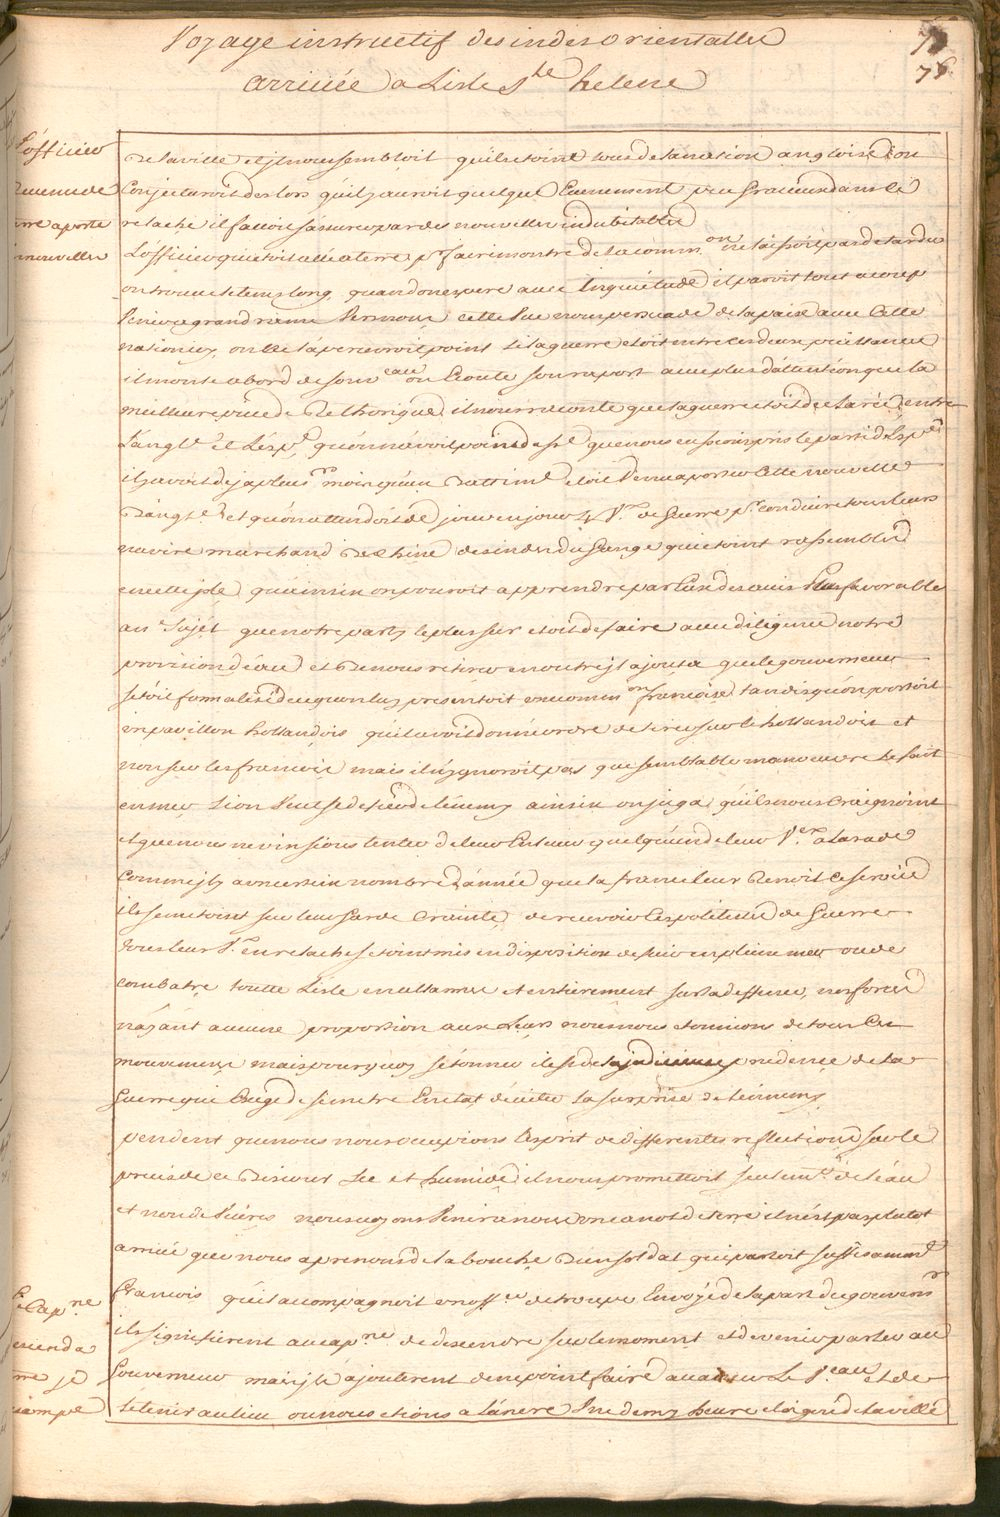 Voyage instructif des indes orientalles
75
76
arrivée a Lisle Ste helene
L'officier
revenu de
terre aporte
nouvelles
De la ville et il nous sembloit quils etoint tous de la nation angloise on
Conjecturoit des lors quil y auroit quelque Evenement peu gracieux dans la
relache il falloit s'assurer par des nouvelles indubitables
L'officier qui etoit allé a terre pr faire montre de la common ne laissoit pas de tarder
on trouve le tems long, quand on espere avec Inquiétude il paroit tout a coup
cette vue nous persuade de la paix avec Cette
nation on ne s'apercevoit point si la guerre etoit entre les deux puissances
il monte a bord de son veau on Ecoute son raport avec plus d'attention que la
meilleure piece de Rethorique, il nous raconte que la guerre etoit declarée entre
L'anglr et L'espe, qu'on ne voit point de sl que nous eussions pris le parti d'Espe
il y avoit deja plusrs mois qu'un Batimt etoit Venu aporter Cette nouvelle
D'anglre et qu'on attendoit de jour en jour Vx de guerre pr conduire tous leurs
navire marchand de Chine des indes du Gange qui etoint rassemblés
en cette isle, qu'ainsin on pouroit apprendre par l'un des avis Plus favorable
au Sujet que notre party le plus sur etoit de faire avec diligence notre
provision d'eau et de nous retirer en outre il ajouta que le gouverneur
s'etoit formalisé de ce quon luy presentoit une common francoise tandis qu'on portoit
un pavillon hollandois quil avoit donné ordre de tirer sur le hollandois et
non sur les francois mais il n'ygnoroit pas que semblable manoeuvre se fait
en mer Lion Veut se defier de l'enemy ainsin on jugea quils nous craignoint
et que nous ne vinsions tenter d'enlever quelqu'un de leur Ver a la rade
Comme il y a un certain nombre d'année que la france leur Rendit Ce service
ils se metoint sur leur garde Crainte de recevoir les politesse de Guerre
tous leur Vx en relache s'etoint mis en disposition de fuir en pleine mer ou de
combatre toutte L'isle en allarmes et entierement sur la deffence, nos forces
n'ayant aucune proportion aux leurs nous nous etonnions de tous Ces
mouvemens mais pourquoy s'etonner il est de la judicieuse prudence de la
Guerre qui Exige de se metre En etat d'eviter la surprise de l'ennemy
pendent que nous nous occupions l'esprit de differentes reflections sur le
precis de ce Discours Sec et humide il nous promettoit seulemt de l'eau
et non de Vivres nous voyons Venir a nous un canot de terre il n'est pas plutot
arrivé que nous aprenons de la bouche D'un soldat qui parloit suffisamment
francois qu'il accompagnoit un offer de troupe Envoyé de la part du gouverr
ils signifierent au capne de dessendre sur le moment et de venir parler au
Gouverneur mais ils ajouterent de ne point faire avancer Le Veau et de
se tenir au lieu ou nous etions a l'ancre Une demy heure eloigné de la ville
Le Capne
descend a
terre je